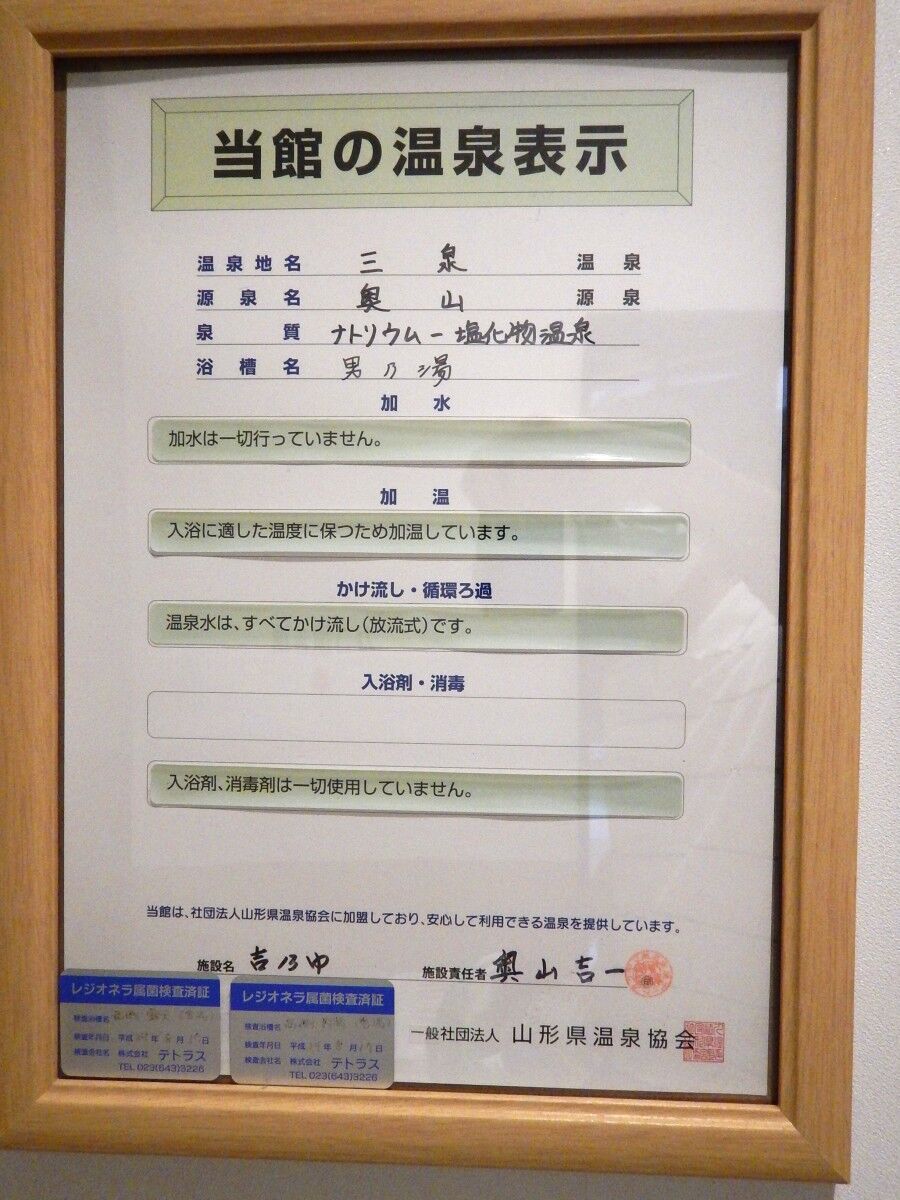 当館の温泉表示
温泉地名 三泉 温泉
源泉名 奥山 源泉
泉質 ナトリウムー塩化物温泉
浴槽名 男乃湯
加水
加水は一切行っていません。
加温
入浴に適した温度に保つため加温しています。
かけ流し・循環ろ過
温泉水は、すべてかけ流し(放流式)です。
入浴剤・消毒
入浴剤、消毒剤は一切使用していません。
当館は、社団法人山形県温泉協会に加盟しており、安心して利用できる温泉を提供しています。
施設名 吉乃ゆ
施設責任者 奥山吉一
一般社団法人 山形県温泉協会
レジオネラ属菌検査済証
検査浴槽名
検査年月日 平成 年 月 日
検査会社名 株式会社 テトラス
TEL 023(643)3226
レジオネラ属菌検査済証
検査浴槽名
検査年月日 平成 年 月 日
検査会社名 株式会社 テトラス
TEL 023(643)3226